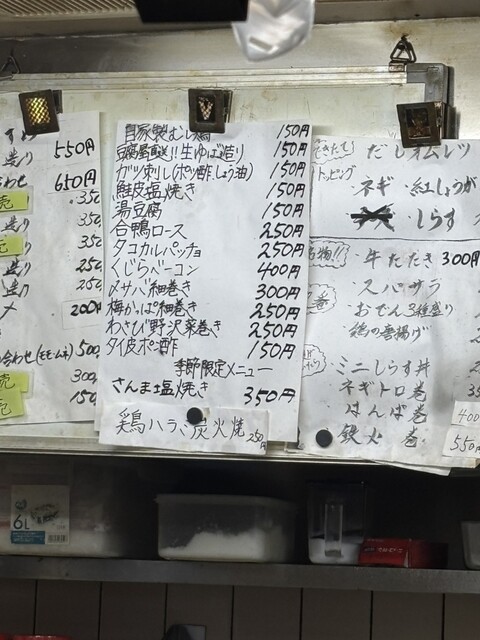 造り 550円
合わせ 650円
売 350
造り 350
売 350
造り 250
造り 250
200円
合わせ(モモ・ムネ) 500
売 300
売 150
自家製むし鶏 150円
豆腐屋直送!!生ゆば造り 150円
ガツ刺し(ポン酢、しょう油) 150円
鮭皮塩焼き 150円
湯豆腐 150円
合鴨ロース 250円
タコカルパッチョ 250円
くじらベーコン 400円
〆サバ細巻き 300円
梅かっぱ細巻き 250円
わさび野沢菜巻き 250円
タイ皮ポン酢 150円
季節限定メニュー
さんま塩焼き 350円
鶏ハラミ炭火焼 250円
できたて だしオムレツ
トッピング
ネギ ・紅しょうが
しらす
名物!! ・牛たたき 300円
・スパサラ
・おでん3種盛り
・鶏の唐揚げ
・ミニしらす丼
・ネギトロ巻
・はんぱ巻 400
・鉄火巻 550円
6L